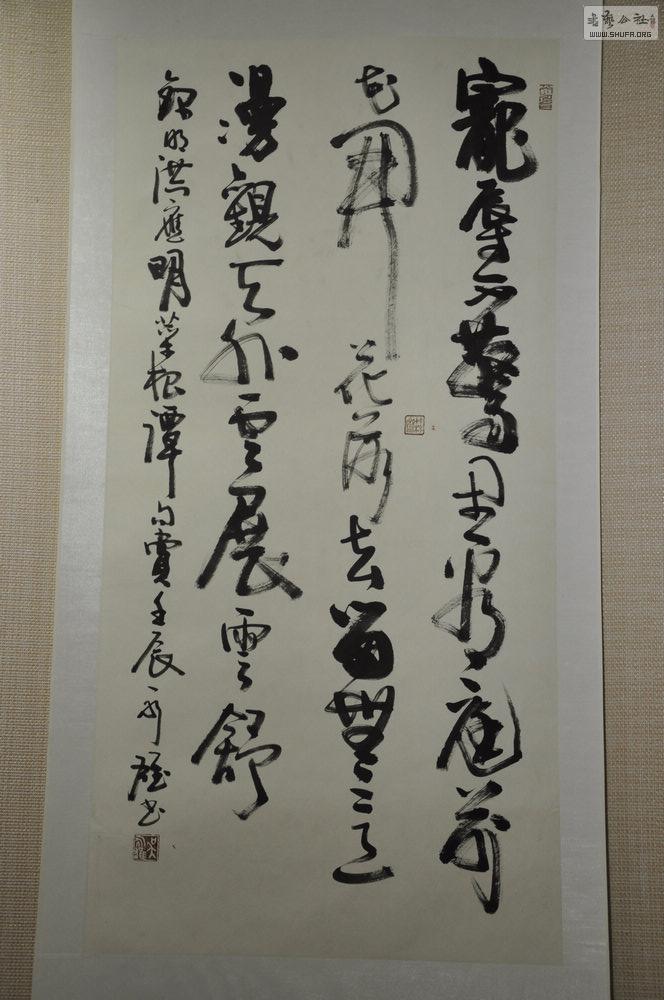 寵辱不驚閑看庭前
花開花落去留無意
漫觀天外雲展雲舒
錄明洪應明菜根譚句壬辰雄书
书艺公社
WWW.SHUFA.ORG